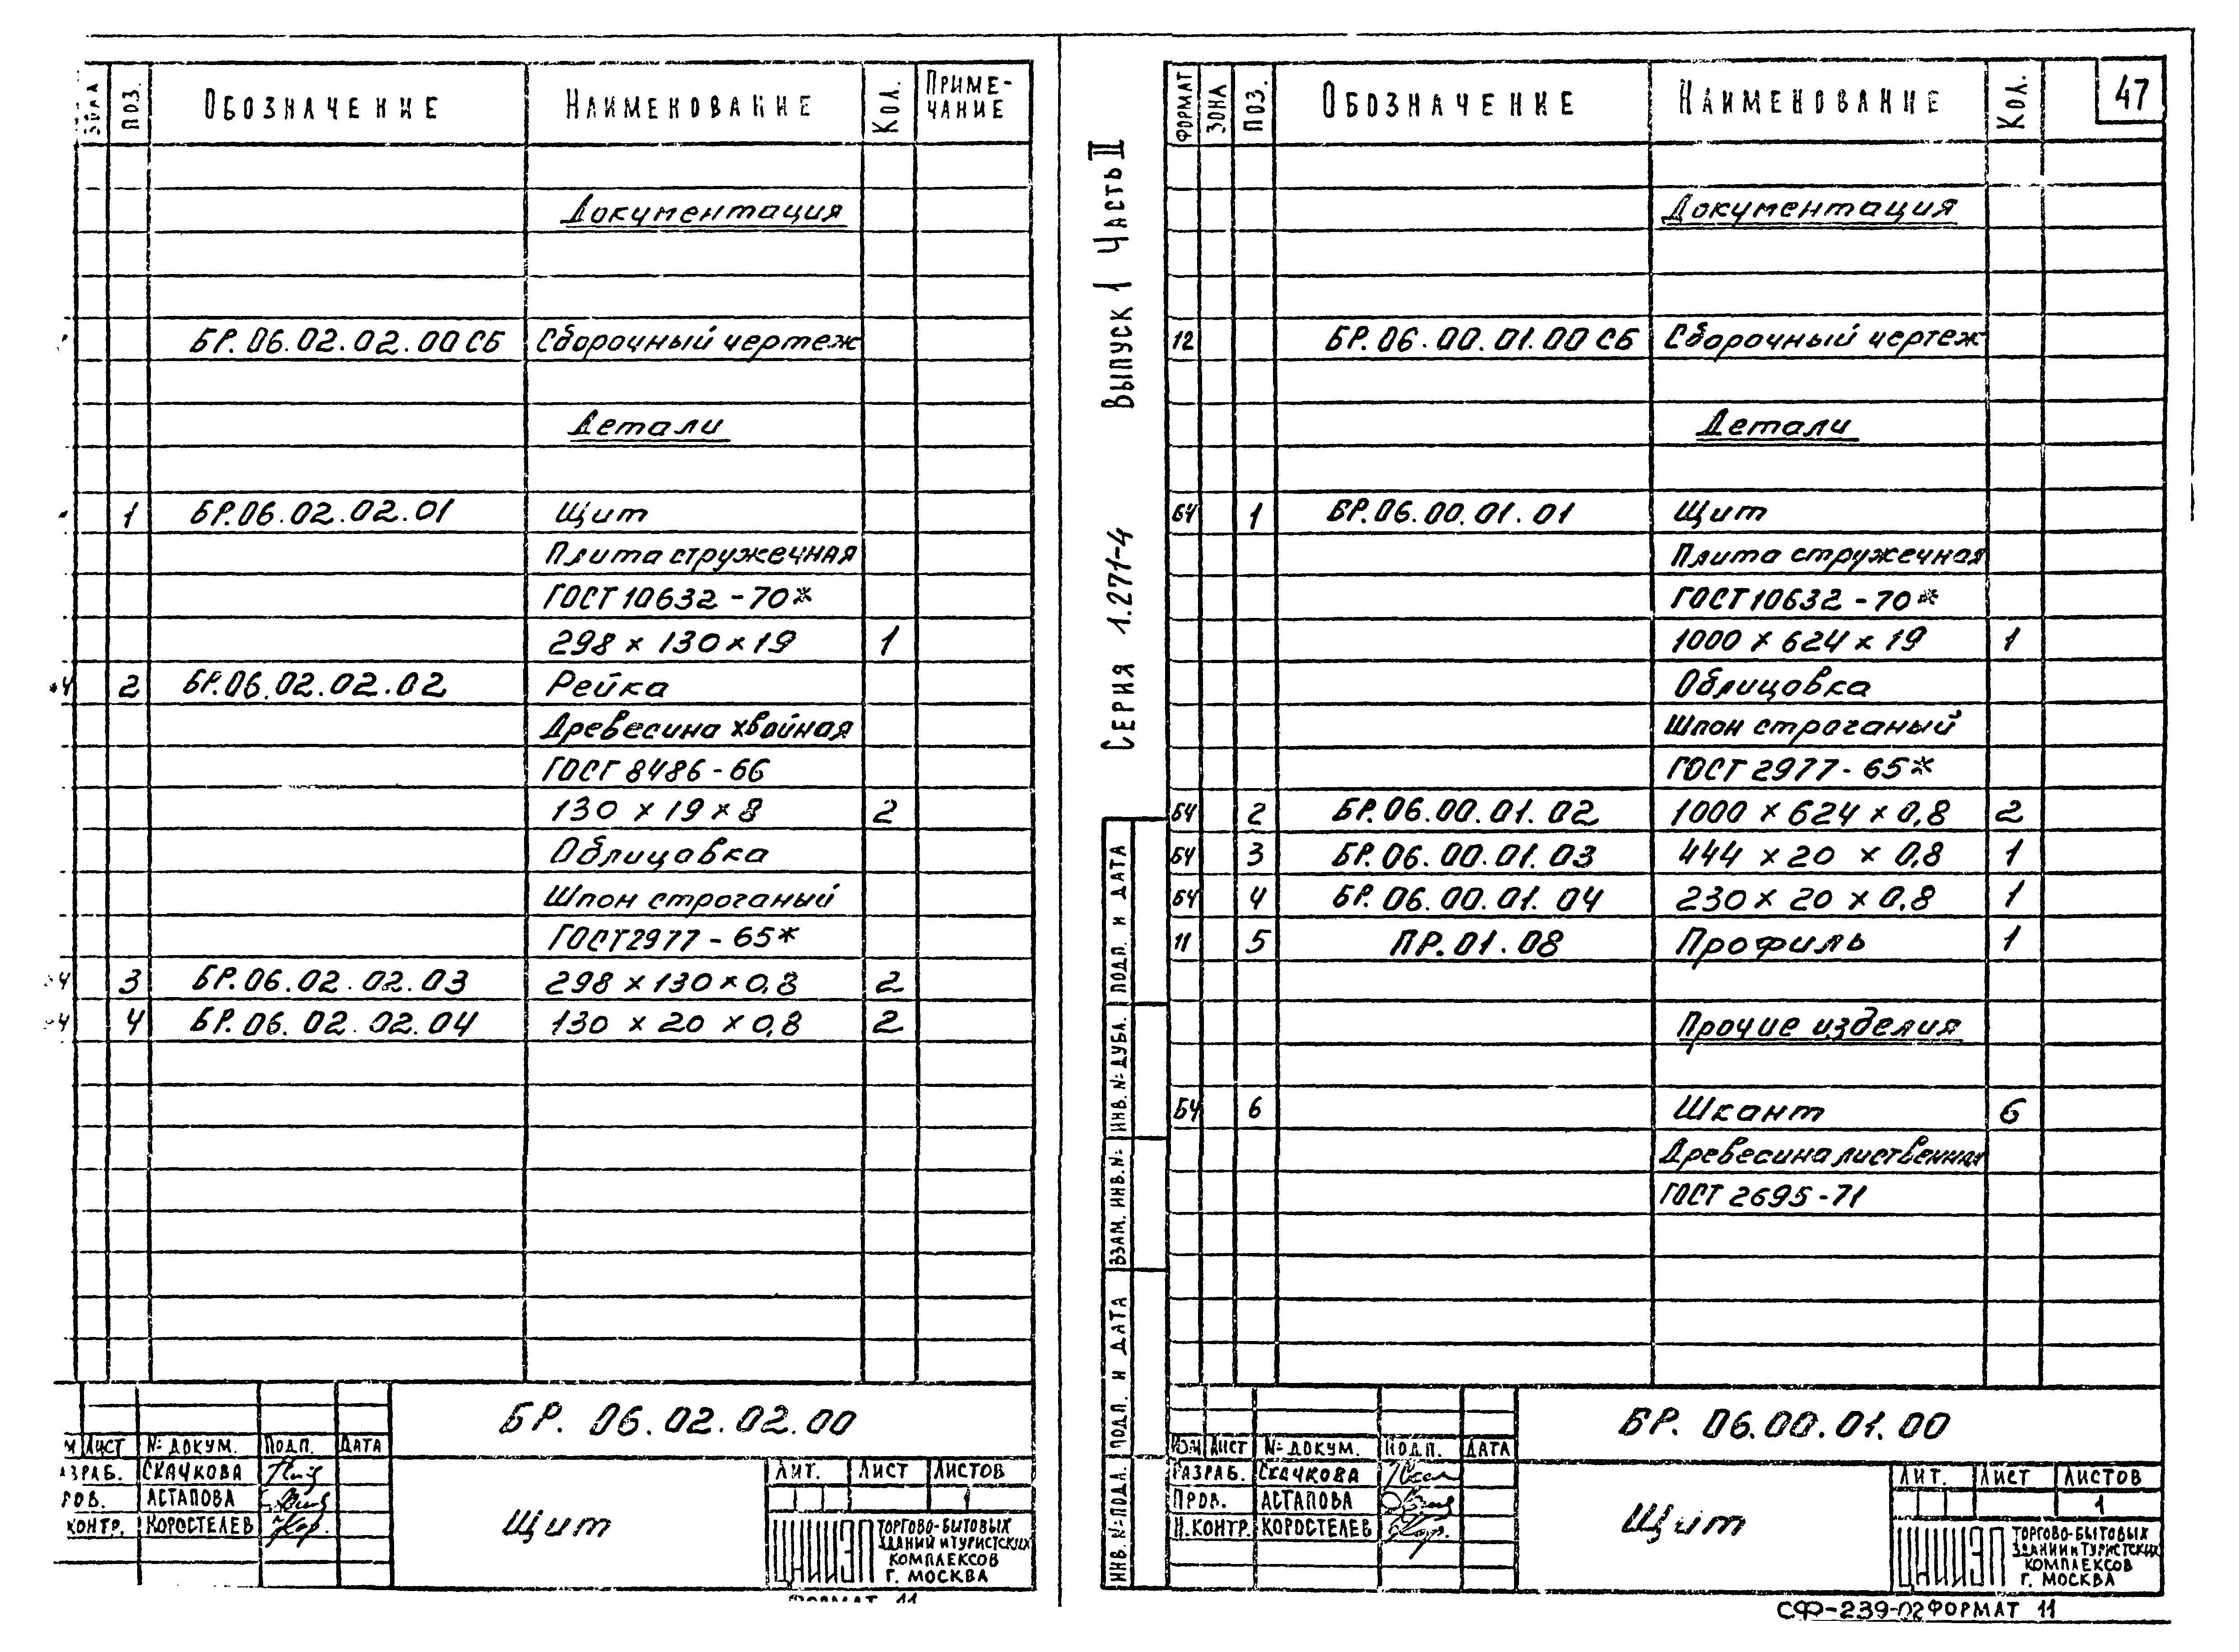 ПОЗ. ОБОЗНАЧЕНИЕ НАИМЕНОВАНИЕ КОЛ. ПРИМЕ-
ЧАНИЕ
Документация
БР.06.02.02.00 СБ Сборочный чертеж
Детали
1 БР.06.02.02.01 Щит
Плита стружечная
ГОСТ 10632-70*
298 × 130 × 19 1
2 БР.06.02.02.02 Рейка
Древесина хвойная
ГОСТ 8486-66
130 × 19 × 8 2
Облицовка
Шпон строганый
ГОСТ 2977-65*
3 БР.06.02.02.03 298 × 130 × 0,8 2
4 БР.06.02.02.04 130 × 20 × 0,8 2
БР. 06.02.02.00
М ЛИСТ № ДОКУМ. ПОДП. ДАТА
АЗРАБ. СКАЧКОВА
РОВ. АСТАПОВА
КОНТР. КОРОСТЕЛЕВ
Щит
ЛИТ. ЛИСТ ЛИСТОВ
1
ЦНИИЭП
ТОРГОВО-БЫТОВЫХ
ЗДАНИЙ И ТУРИСТСКИХ
КОМПЛЕКСОВ
Г. МОСКВА
ФОРМАТ 11
СЕРИЯ 1.271-4 ВЫПУСК 1 ЧАСТЬ II
47
ФОРМАТ ЗОНА ПОЗ. ОБОЗНАЧЕНИЕ НАИМЕНОВАНИЕ КОЛ.
Документация
12 БР.06.00.01.00 СБ Сборочный чертеж
Детали
БЧ 1 БР.06.00.01.01 Щит
Плита стружечная
ГОСТ 10632-70*
1000 × 624 × 19 1
Облицовка
Шпон строганый
ГОСТ 2977-65*
БЧ 2 БР.06.00.01.02 1000 × 624 × 0,8 2
БЧ 3 БР.06.00.01.03 444 × 20 × 0,8 1
БЧ 4 БР.06.00.01.04 230 × 20 × 0,8 1
11 5 ПР.01.08 Профиль 1
Прочие изделия
БЧ 6 Шкант 6
Древесина лиственная
ГОСТ 2695-71
ИНВ. № ПОДЛ. ПОДП. И ДАТА ВЗАМ. ИНВ. № ИНВ. № ДУБЛ. ПОДП. И ДАТА
БР. 06.00.01.00
ИЗМ ЛИСТ № ДОКУМ. ПОДП. ДАТА
РАЗРАБ. СКАЧКОВА
ПРОВ. АСТАПОВА
Н.КОНТР. КОРОСТЕЛЕВ
Щит
ЛИТ. ЛИСТ ЛИСТОВ
1
ЦНИИЭП
ТОРГОВО-БЫТОВЫХ
ЗДАНИЙ И ТУРИСТСКИХ
КОМПЛЕКСОВ
Г. МОСКВА
СФ-239-02 ФОРМАТ 11